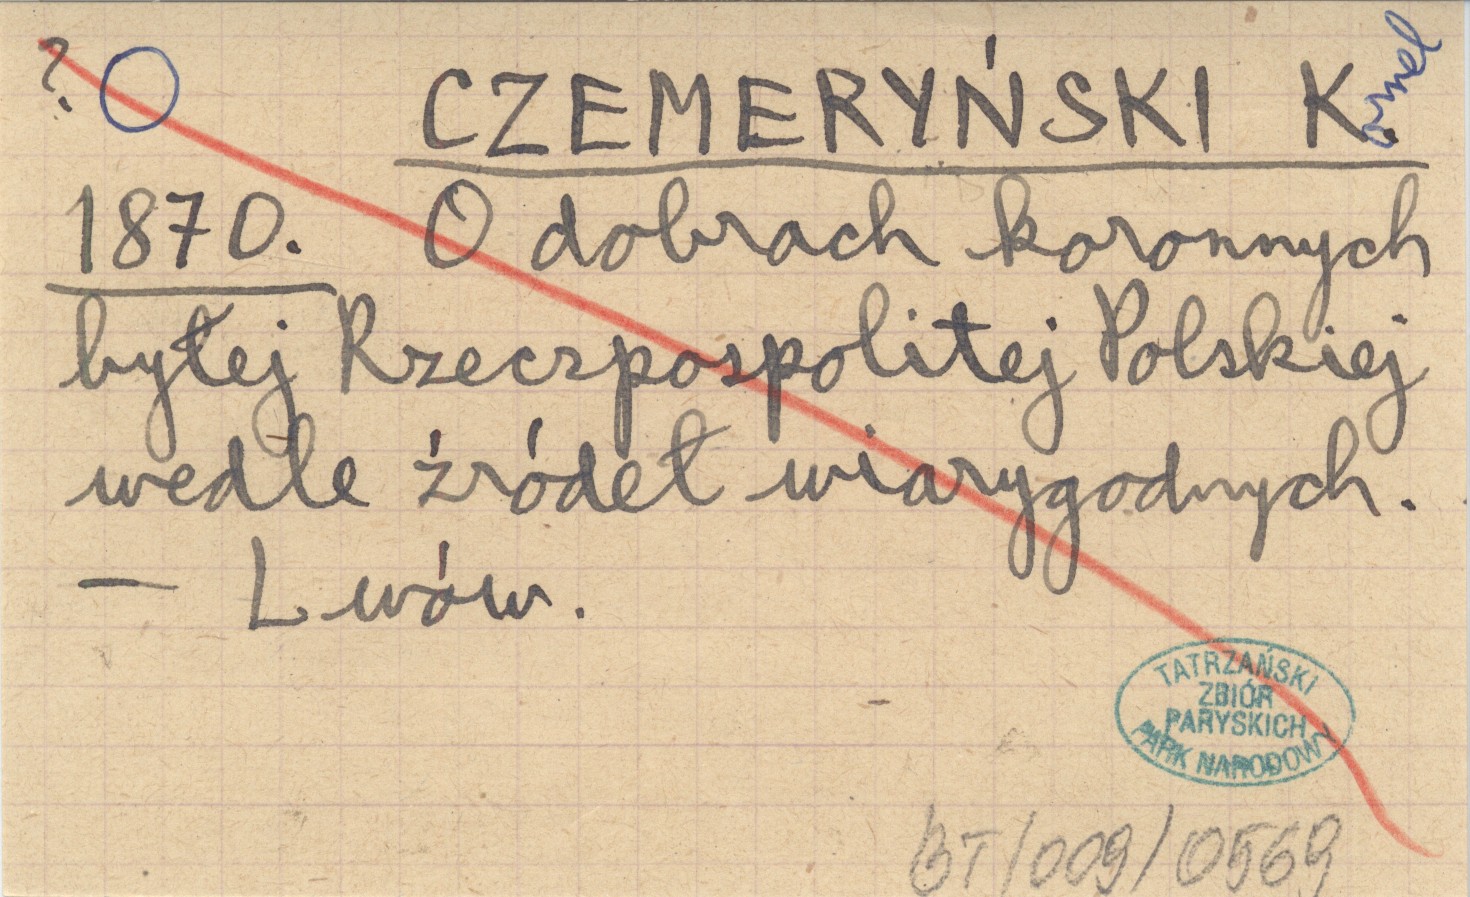 ? CZEMERYŃSKI K.ornel
1870. O dobrach koronnych
byłej Rzeczpospolitej Polskiej
wedle źródeł wiarygodnych.
— Lwów.
TATRZAŃSKI
ZBIÓR
PARYSKICH
PARK NARODOWY
BT/009/0569